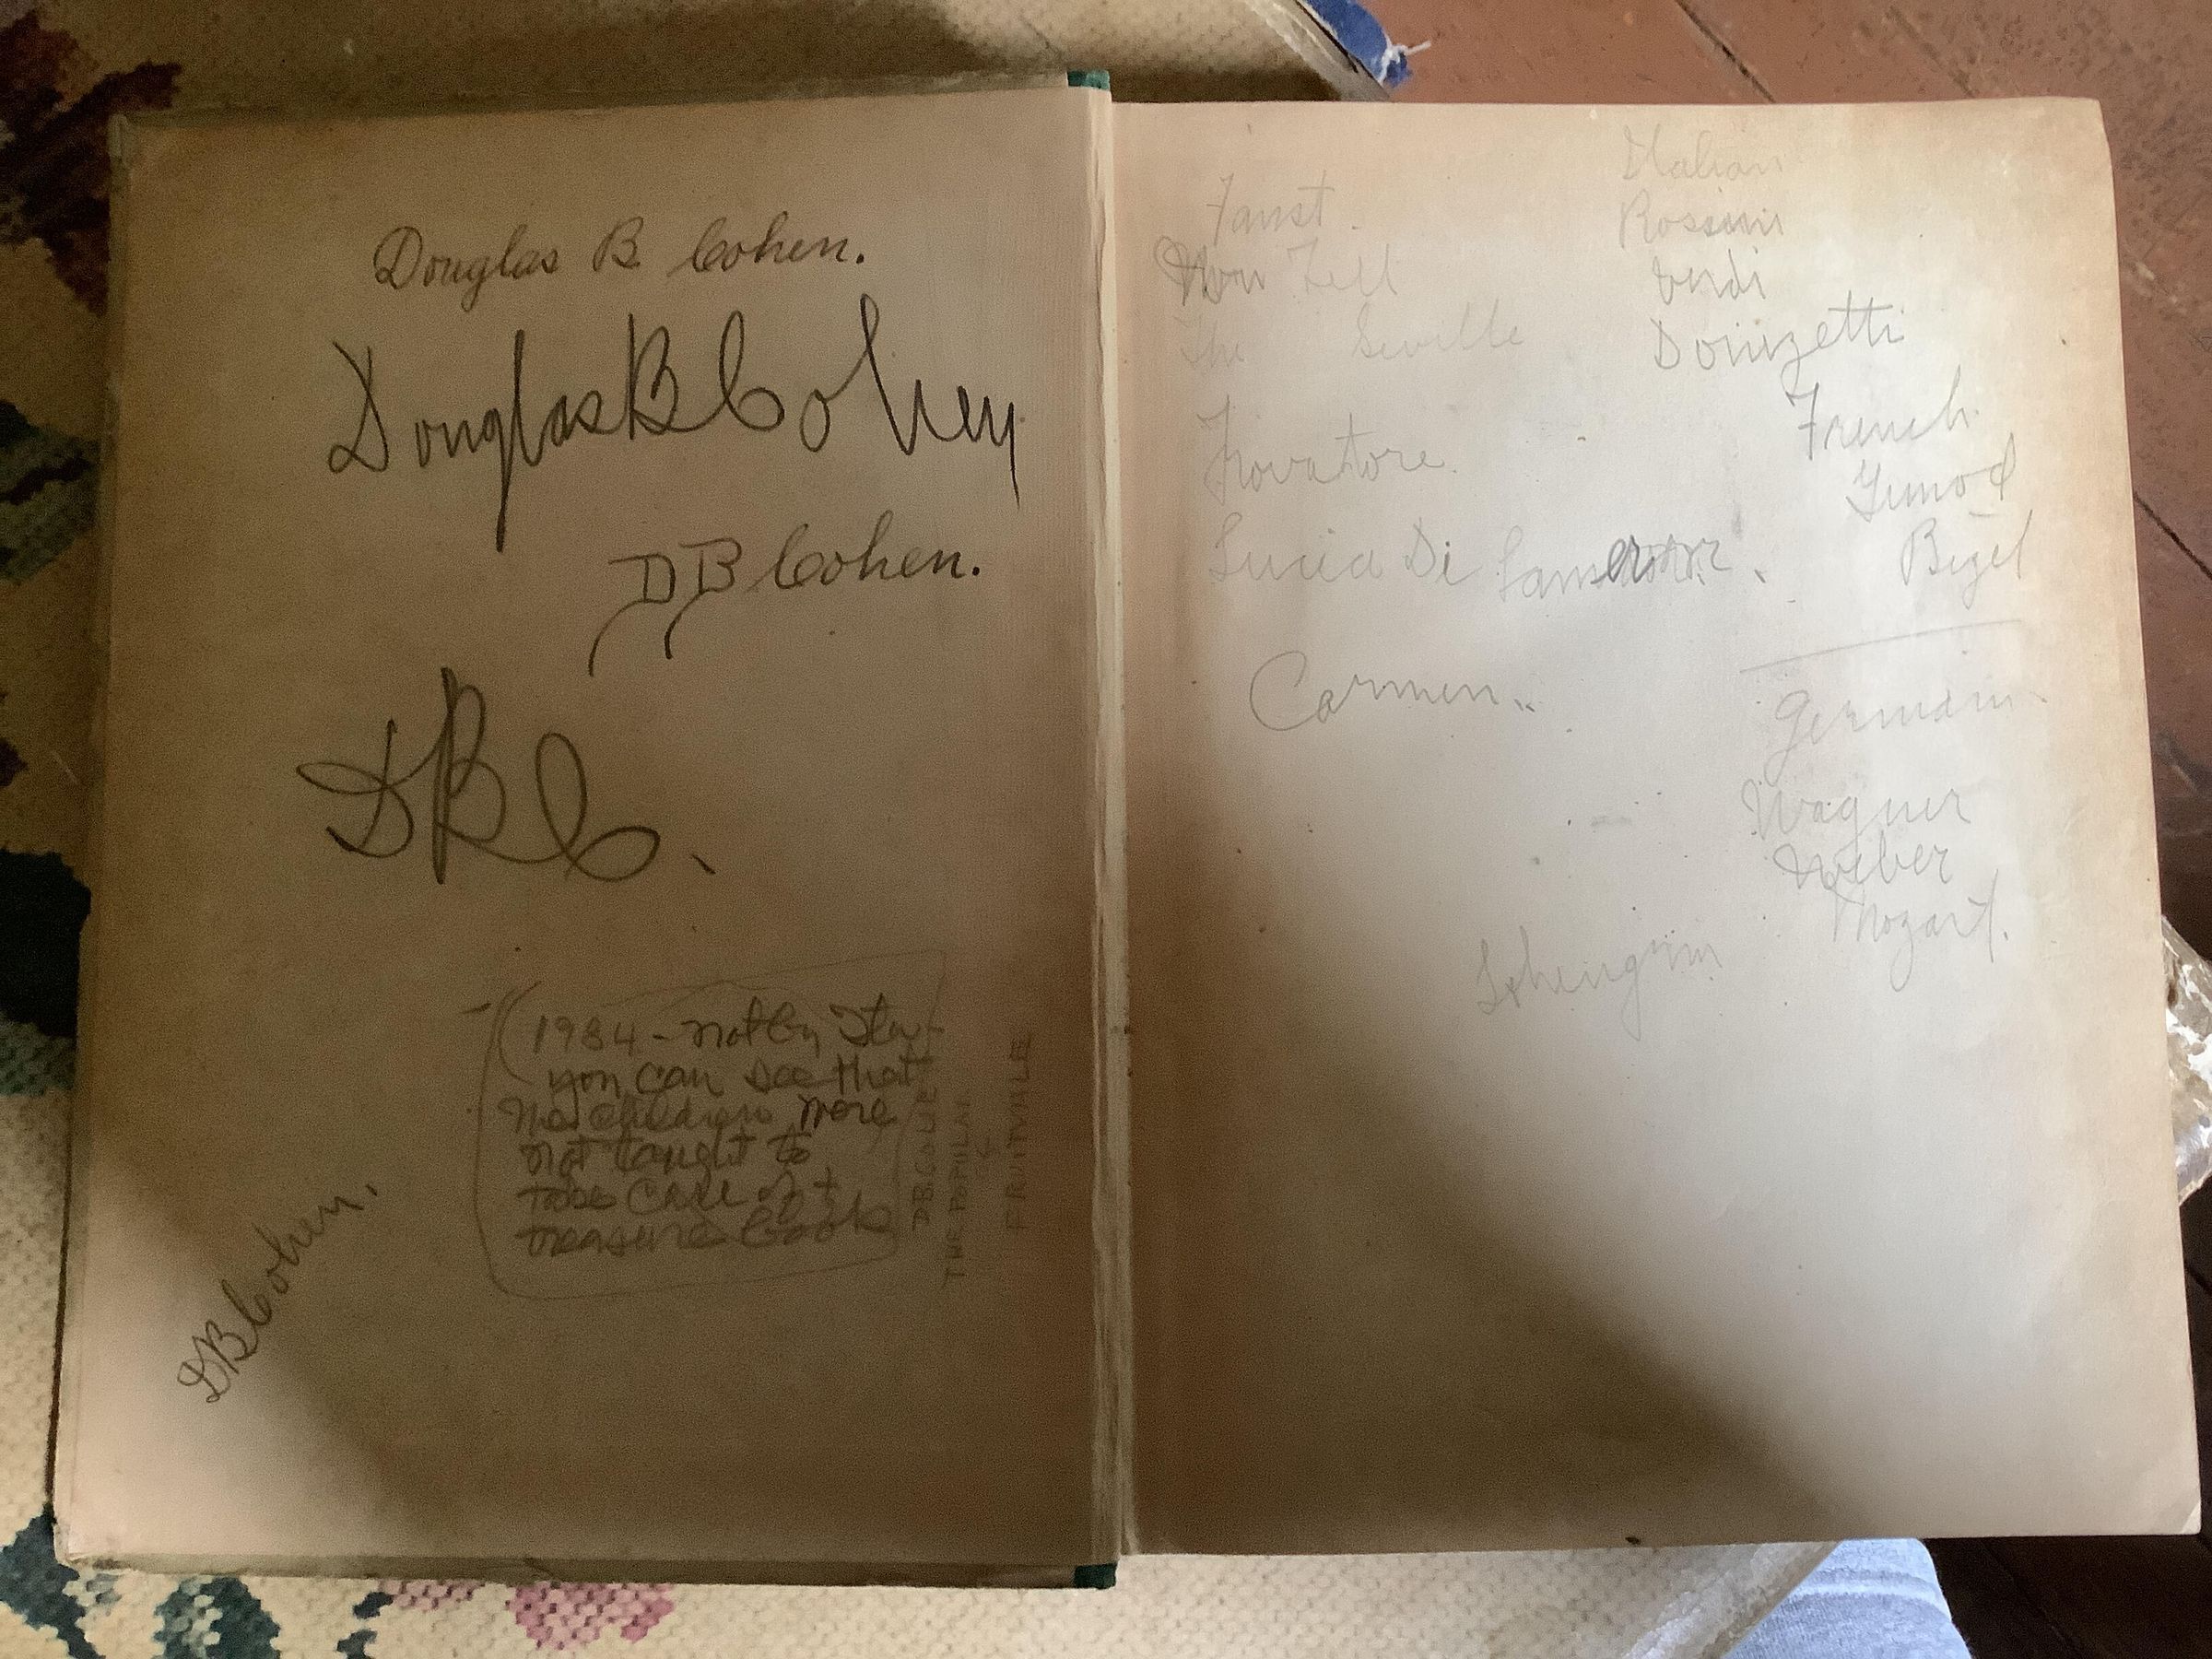 Douglas B Cohen.
Douglas B Cohen
DB Cohen.
DBC.
(1984 - not by
you can see that
the children were
not taught to
take care of +
treasure books
DB Cohen.
THE POPULAR
FRUITVALE
Faust.
Tell
The Seville
Trovatore.
Lucia Di
Carmen..
Italian
Rossini
Verdi
Donizetti
French
Gunod
Bizet
German.
Wagner
Weber
Mozart.